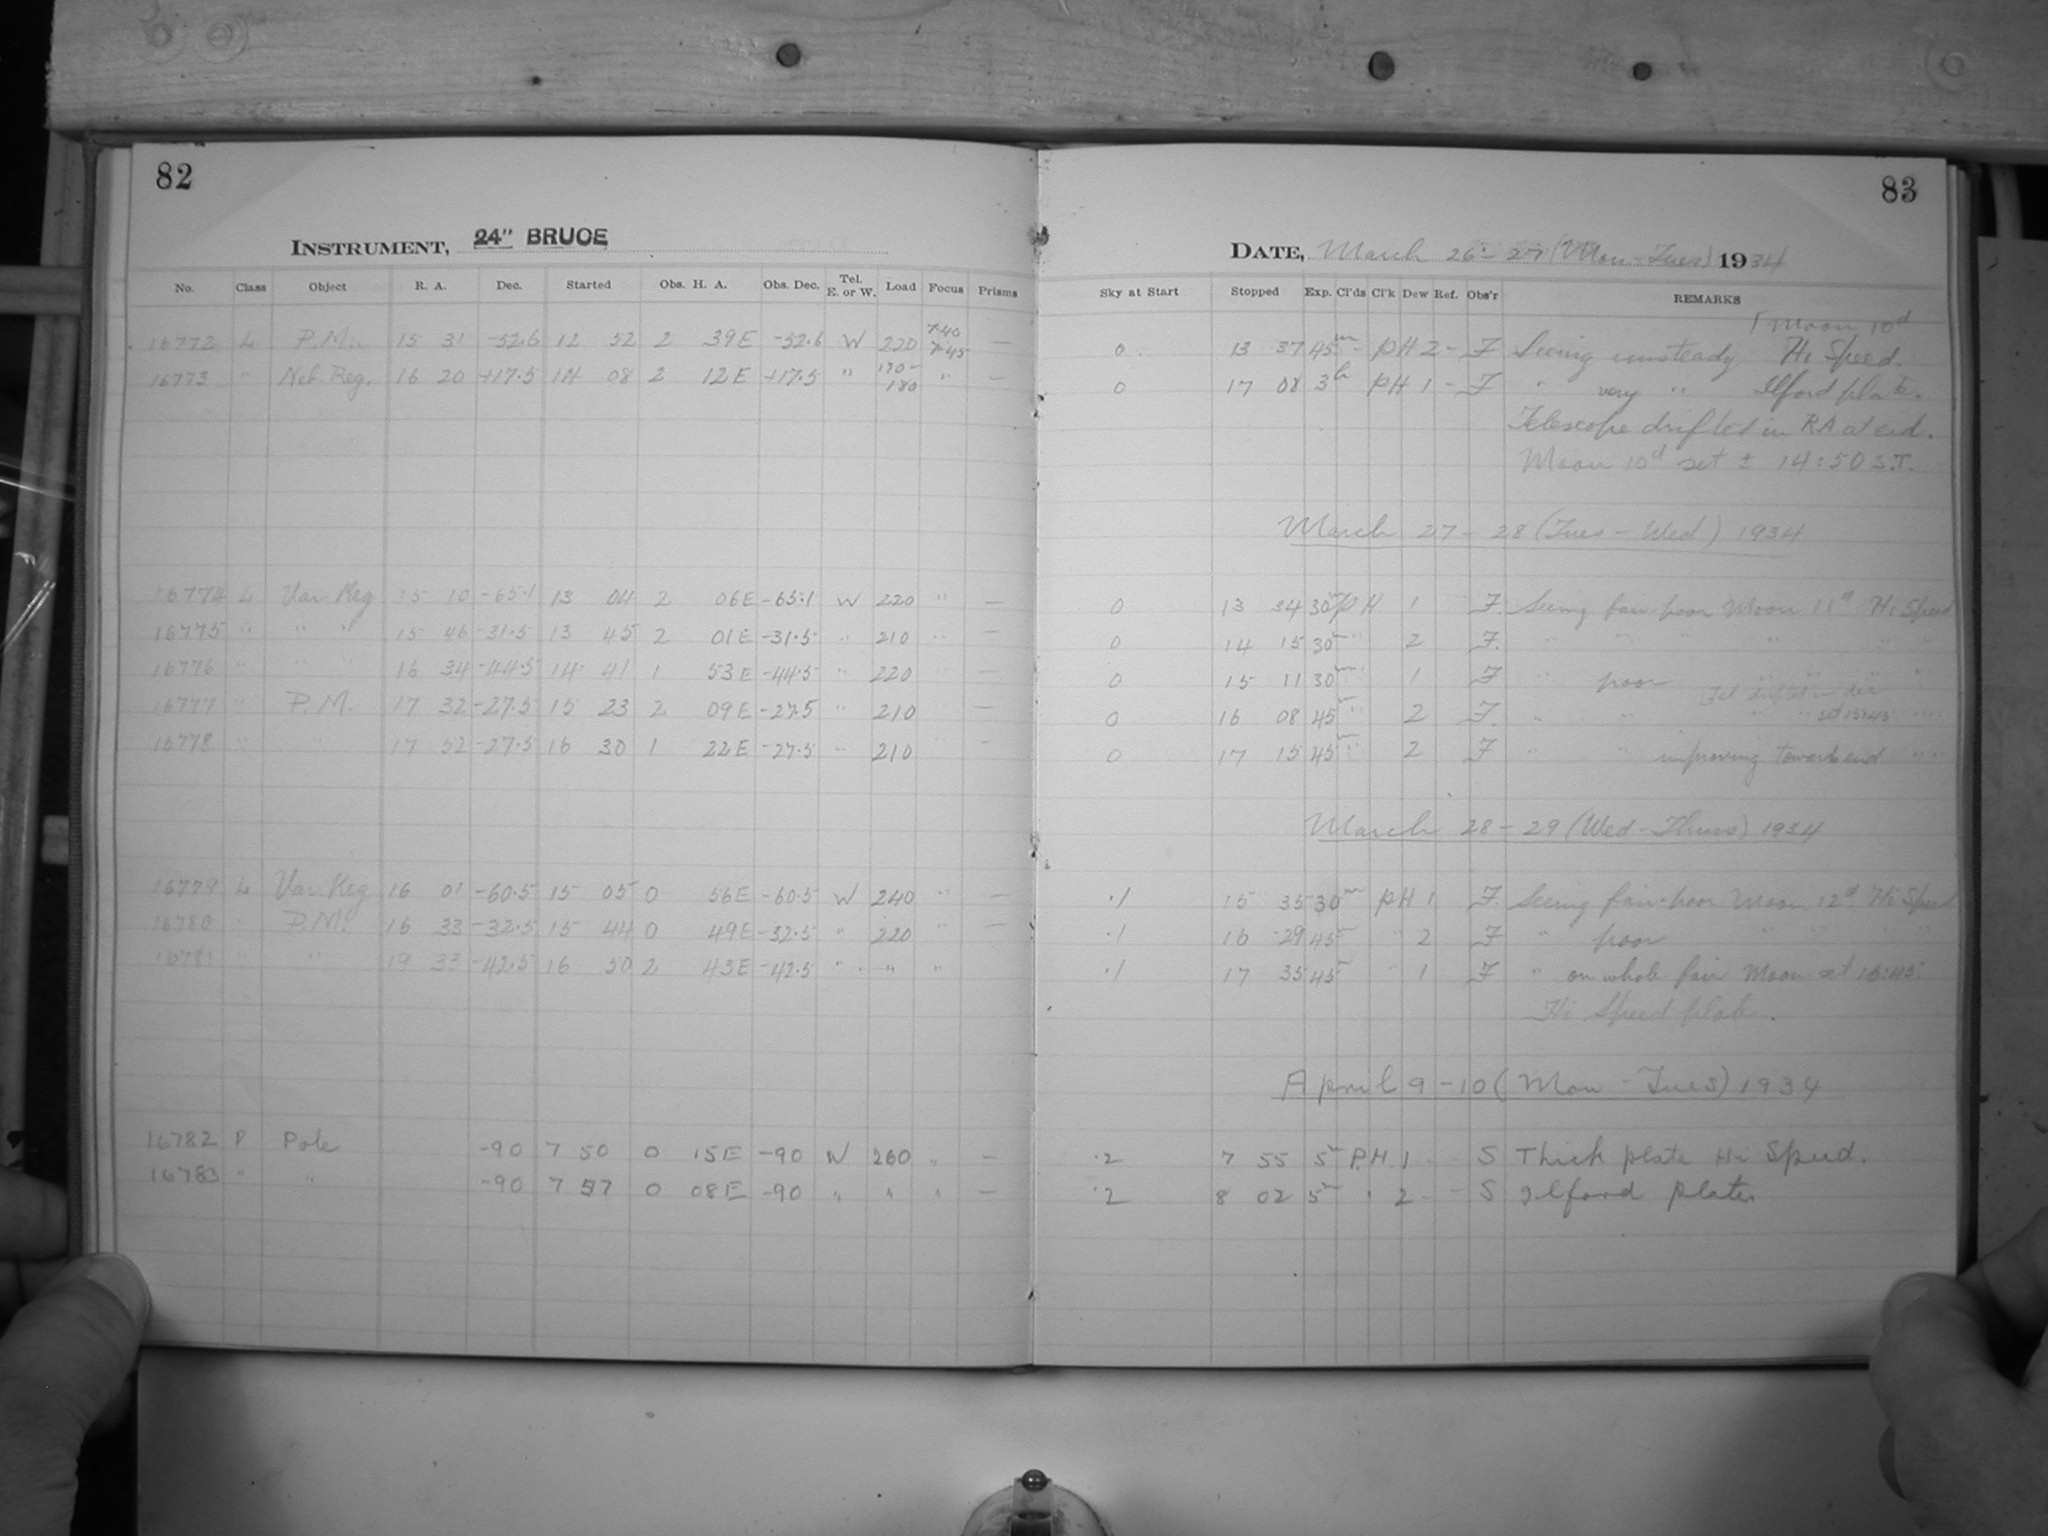 82
83
INSTRUMENT, 24" BRUCE
DATE, March 26-27 (Mon-Tues) 1934
No. Class Object R. A. Dec. Started Obs. H. A. Obs. Dec. Tel. E. or W. Load Focus Prisms Sky at Start Stopped Exp. Cl'ds Cl'k Dew Ref. Obs'r REMARKS
Moon 10d
16772 L P.M. 15 31 -52.6 12 52 2 39E -52.6 W 220 7.40 7.45 — 0 13 37 45m - PH 2 - F Seeing unsteady Hi Speed.
16773 " Neb. Reg. 16 20 +17.5 14 08 2 12E +17.5 " 180 " — 0 17 08 3h PH 1 - F " very " Ilford plate.
Telescope drifted in RA at end.
Moon 10d set ± 14:50 S.T.
March 27 - 28 (Tues - Wed) 1934
16774 L Var Reg 15 10 -65.1 13 04 2 06E -65.1 W 220 " — 0 13 34 30m PH 1 F. Seeing fair-poor Moon 11d Hi Speed
16775 " " " 15 46 -31.5 13 45 2 01E -31.5 " 210 " — 0 14 15 30m " 2 F. " " " " " "
16776 " " " 16 34 -44.5 14 41 1 53E -44.5 " 220 " — 0 15 11 30m " 1 F " poor
16777 " P.M. 17 32 -27.5 15 23 2 09E -27.5 " 210 " — 0 16 08 45m " 2 F. " " set 15:45
16778 " " 17 52 -27.5 16 30 1 22E -27.5 " 210 " — 0 17 15 45m " 2 F " " improving towards end " "
March 28 - 29 (Wed - Thurs) 1934
16779 L Var Reg 16 01 -60.5 15 05 0 56E -60.5 W 240 " — .1 15 35 30m PH 1 F. Seeing fair-poor Moon 12d Hi Speed
16780 " P.M. 16 33 -32.5 15 44 0 49E -32.5 " 220 " — .1 16 29 45m " 2 F " poor " " " "
16781 " " 19 33 -42.5 16 50 2 43E -42.5 " " " .1 17 35 45m " 1 F " on whole fair Moon set 16:45
Hi Speed plate.
April 9 - 10 (Mon - Tues) 1934
16782 P Pole -90 7 50 0 15E -90 W 260 " — .2 7 55 5m P.H. 1 - S Thick plate Hi Speed.
16783 " " -90 7 57 0 08E -90 " " " — .2 8 02 5m " 2 - S Ilford plates